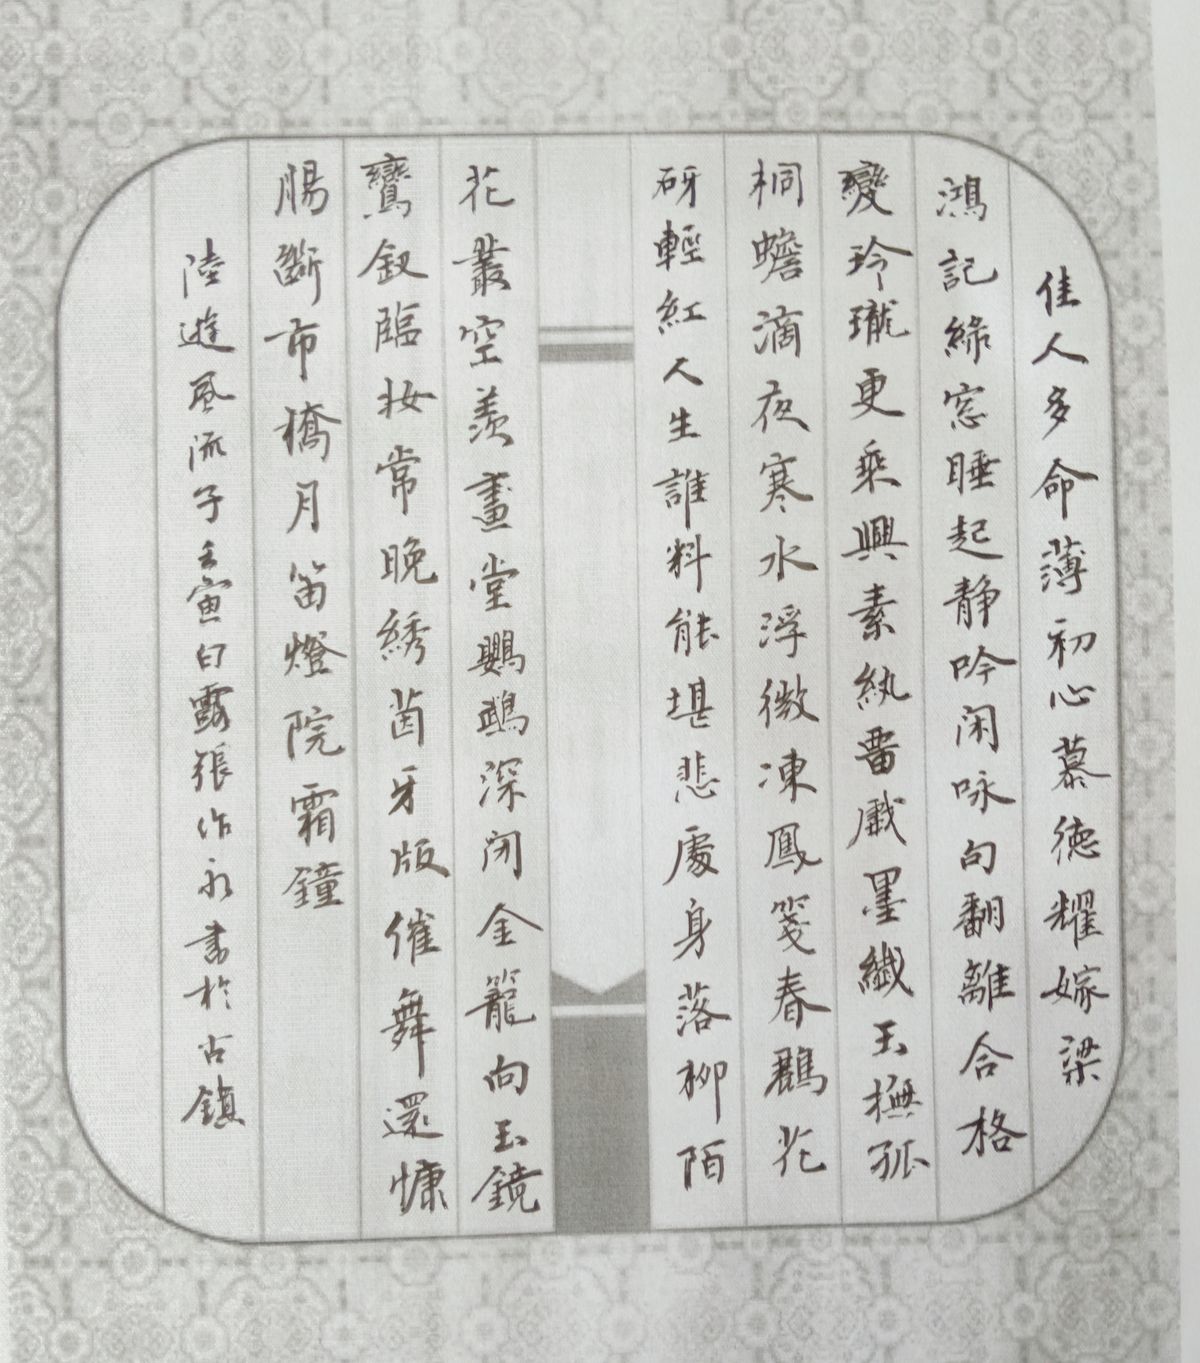 佳人多命薄初心慕德耀嫁梁
鴻記綠窓睡起静吟闲咏句翻離合格
變玲瓏更乗興素紈畱戲墨纎玉撫孤
桐蟾滴夜寒水浮微凍鳳箋春麗花
砑輕紅人生誰料能堪悲處身落柳陌
花叢空羨畫堂鸚鵡深闭金籠向玉鏡
鸞釵臨妝常晚綉茵牙版催舞還慵
腸斷市橋月笛燈院霜鐘
陸遊風流子壬寅白露張作永書於古鎮